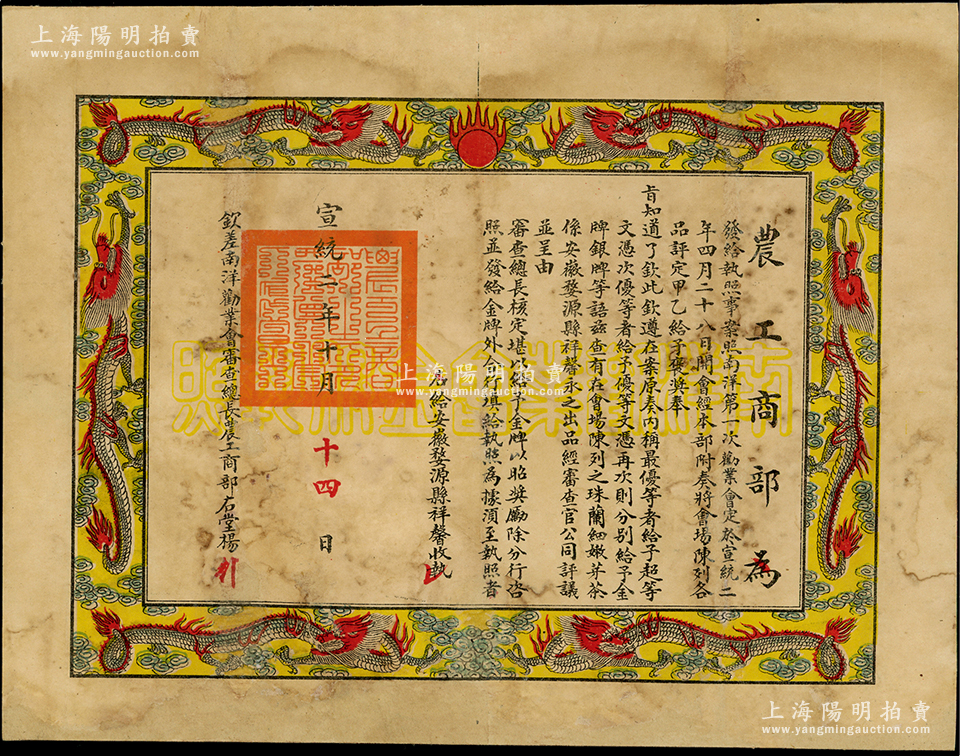 上海陽明拍賣
www.yangmingauction.com
農工商部 為
發給執照事案照南洋第一次勸業會定於宣統二
年四月二十八日開會經本部附奏將會場陳列各
品評定甲乙給予褒獎奉
旨知道了欽此欽遵在案原奏內稱最優等者給予超等
文憑次優等者給予優等文憑再次則分別給予金
牌銀牌等語茲查有在會場陳列之珠蘭細嫩芽茶
係安徽婺源縣祥馨永之出品經審查官公同評議
並呈由
審查總長核定堪以給予金牌以昭獎勵除分行咨
照並發給金牌外合行填給執照為據須至執照者
右給安徽婺源縣祥馨收執
宣統二年十月十四日
欽差南洋勸業會審查總長農工商部右堂楊
南洋勸業會金牌執照
上海陽明拍賣
www.yangmingauction.com
上海陽明拍賣
www.yangmingauction.com